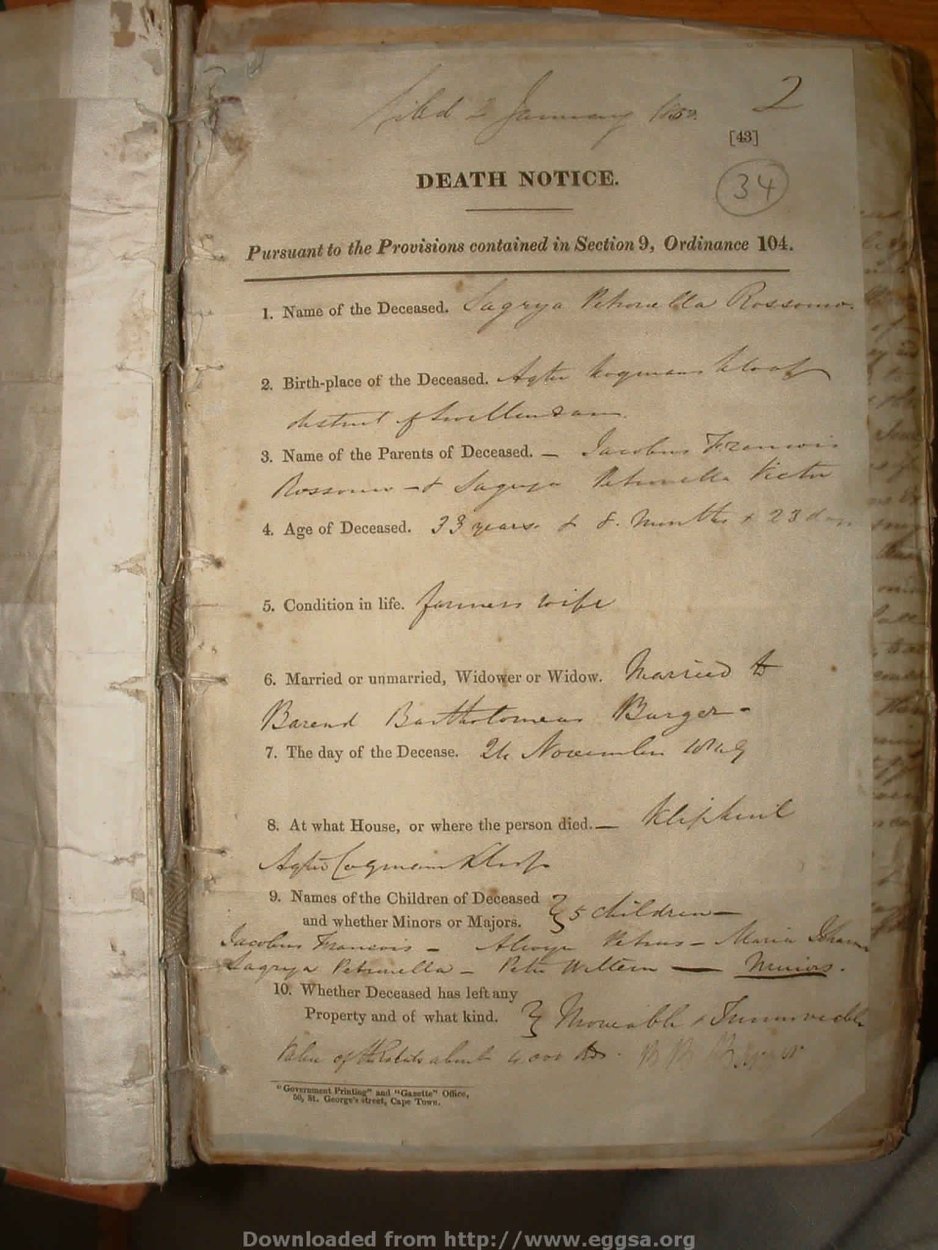 Filed 2 January 1850.
2
[43]
DEATH NOTICE.
34
Pursuant to the Provisions contained in Section 9, Ordinance 104.
1. Name of the Deceased. Sagrya Petronella Rossouw.
2. Birth-place of the Deceased. Agter Kogmans Kloof
district of Swellendam.
3. Name of the Parents of Deceased. — Jacobus Francois
Rossouw - & Sagrya Petronella Victor
4. Age of Deceased. 33 years & 8. Months & 23 days
5. Condition in life. farmers wife
6. Married or unmarried, Widower or Widow. Married to
Barend Bartholomeus Burger -
7. The day of the Decease. November 1849
8. At what House, or where the person died. — Klipheuvel
Agter Cogmans Kloof
9. Names of the Children of Deceased
and whether Minors or Majors. 5 children —
Jacobus Francois - Petrus - Maria
Sagrya Petronella - Willem — Minors.
10. Whether Deceased has left any
Property and of what kind. Moveable & Immoveable
Value of about
"Government Printing" and "Gazette" Office,
50, St. George's street, Cape Town.
Downloaded from http://www.eggsa.org